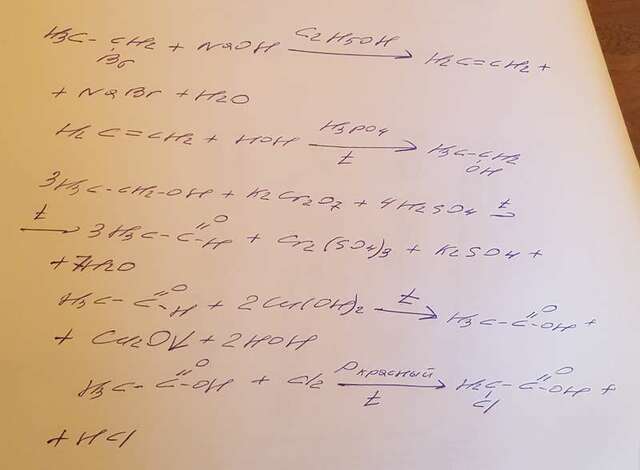 H3C-CH2 + NaOH C2H5OH → H2C=CH2 +
Br
+ NaBr + H2O
H2C=CH2 + HOH H3PO4 → H3C-CH2
t OH
3H3C-CH2-OH + K2Cr2O7 + 4H2SO4 t →
t → 3H3C-C=O-H + Cr2(SO4)3 + K2SO4 +
+ 7H2O
H3C-C=O-H + 2Cu(OH)2 t → H3C-C=O-OH +
+ Cu2O↓ + 2HOH
H3C-C=O-OH + Cl2 P красный → H2C-C=O-OH +
t Cl
+ HCl